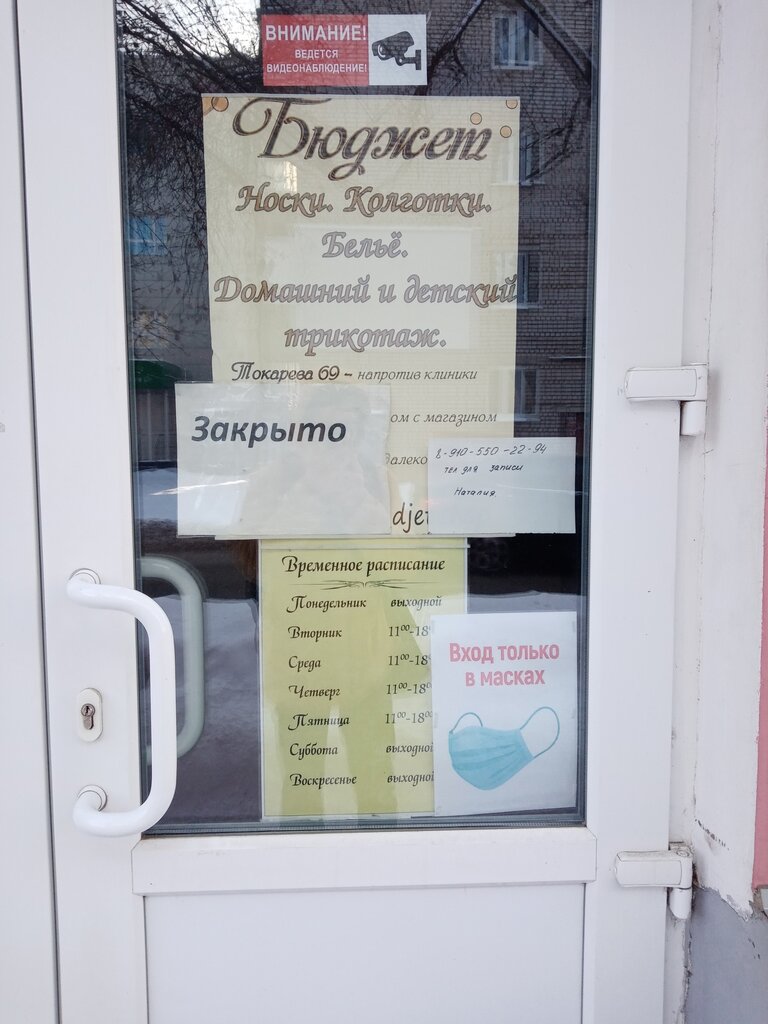 ВНИМАНИЕ!
ВЕДЕТСЯ
ВИДЕОНАБЛЮДЕНИЕ!
Бюджет
Носки. Колготки.
Бельё.
Домашний и детский
трикотаж.
Токарева 69 - напротив клиники
ом с магазином
далеко
djet
Закрыто
8-910-550-22-94
тел для записи
Наталия
Временное расписание
Понедельник выходной
Вторник 11⁰⁰-18
Среда 11⁰⁰-18
Четверг 11⁰⁰-18⁰
Пятница 11⁰⁰-18⁰⁰
Суббота выходной
Воскресенье выходной
Вход только
в масках